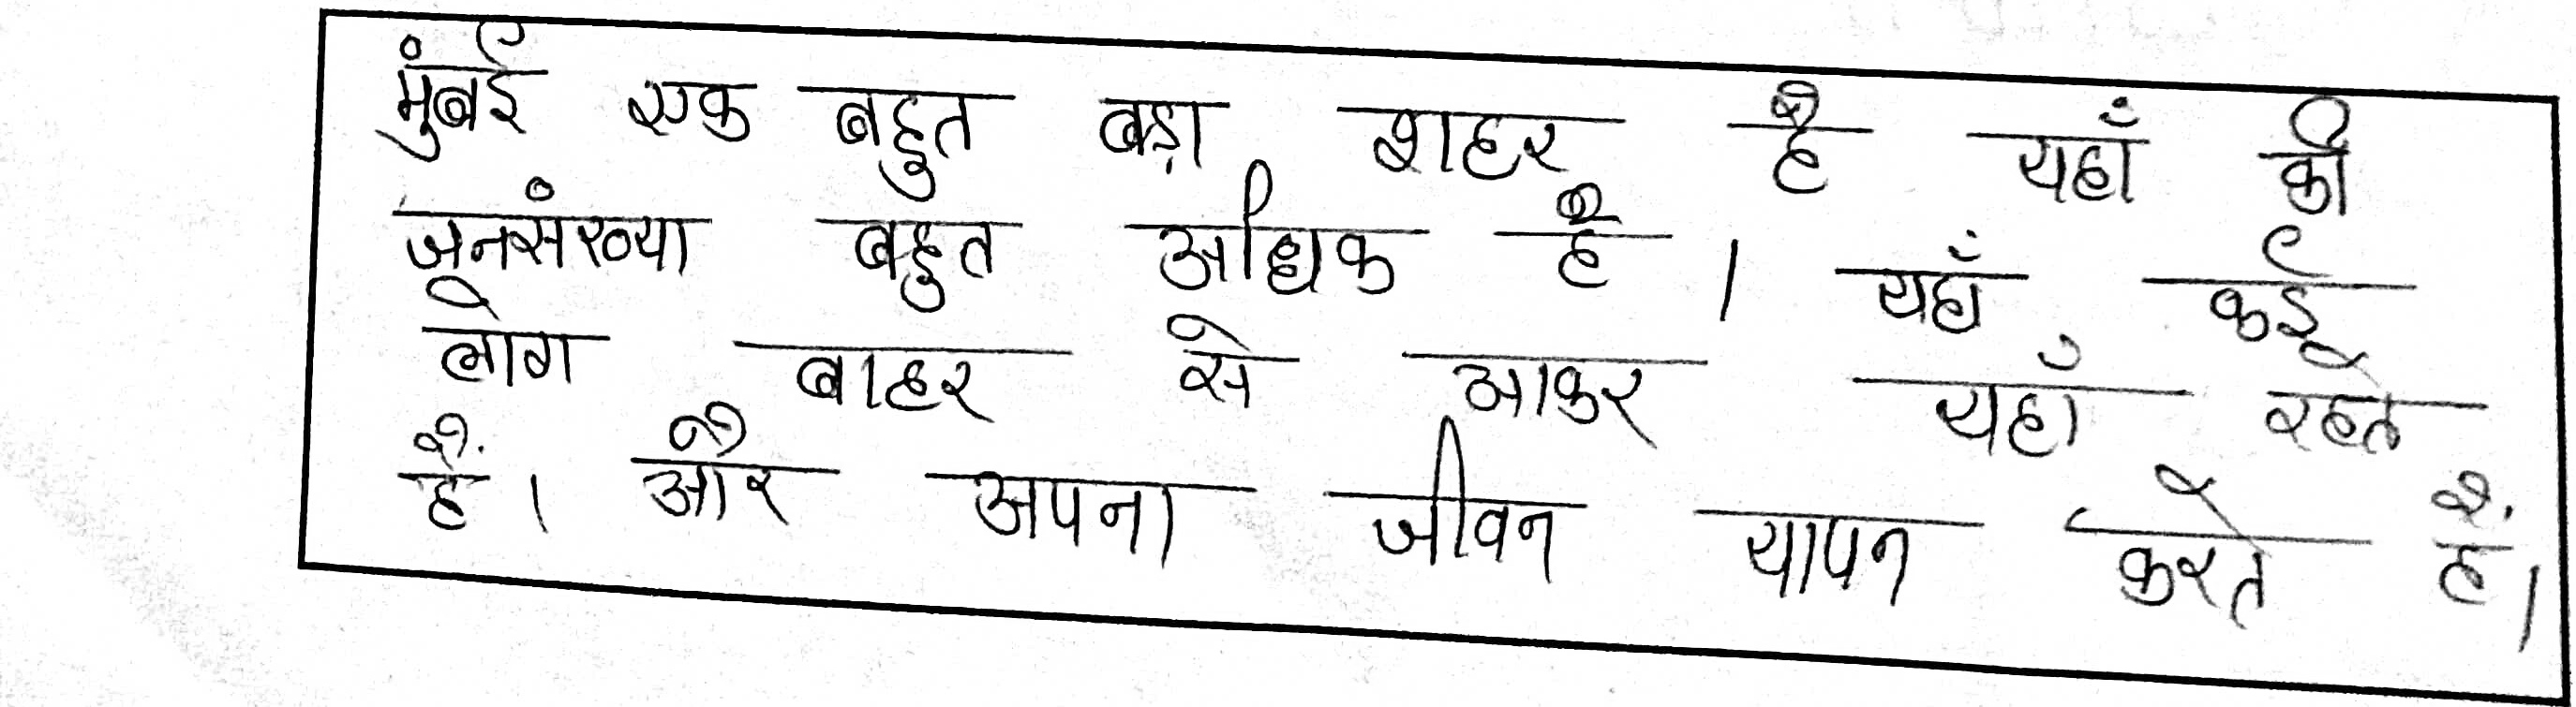 मुंबई एक बहुत बड़ा शहर है यहाँ की
जनसंख्या बहुत अधिक है । यहाँ कई
लोग बाहर से आकर यहाँ रहते
हैं । और अपना जीवन यापन करते हैं ।